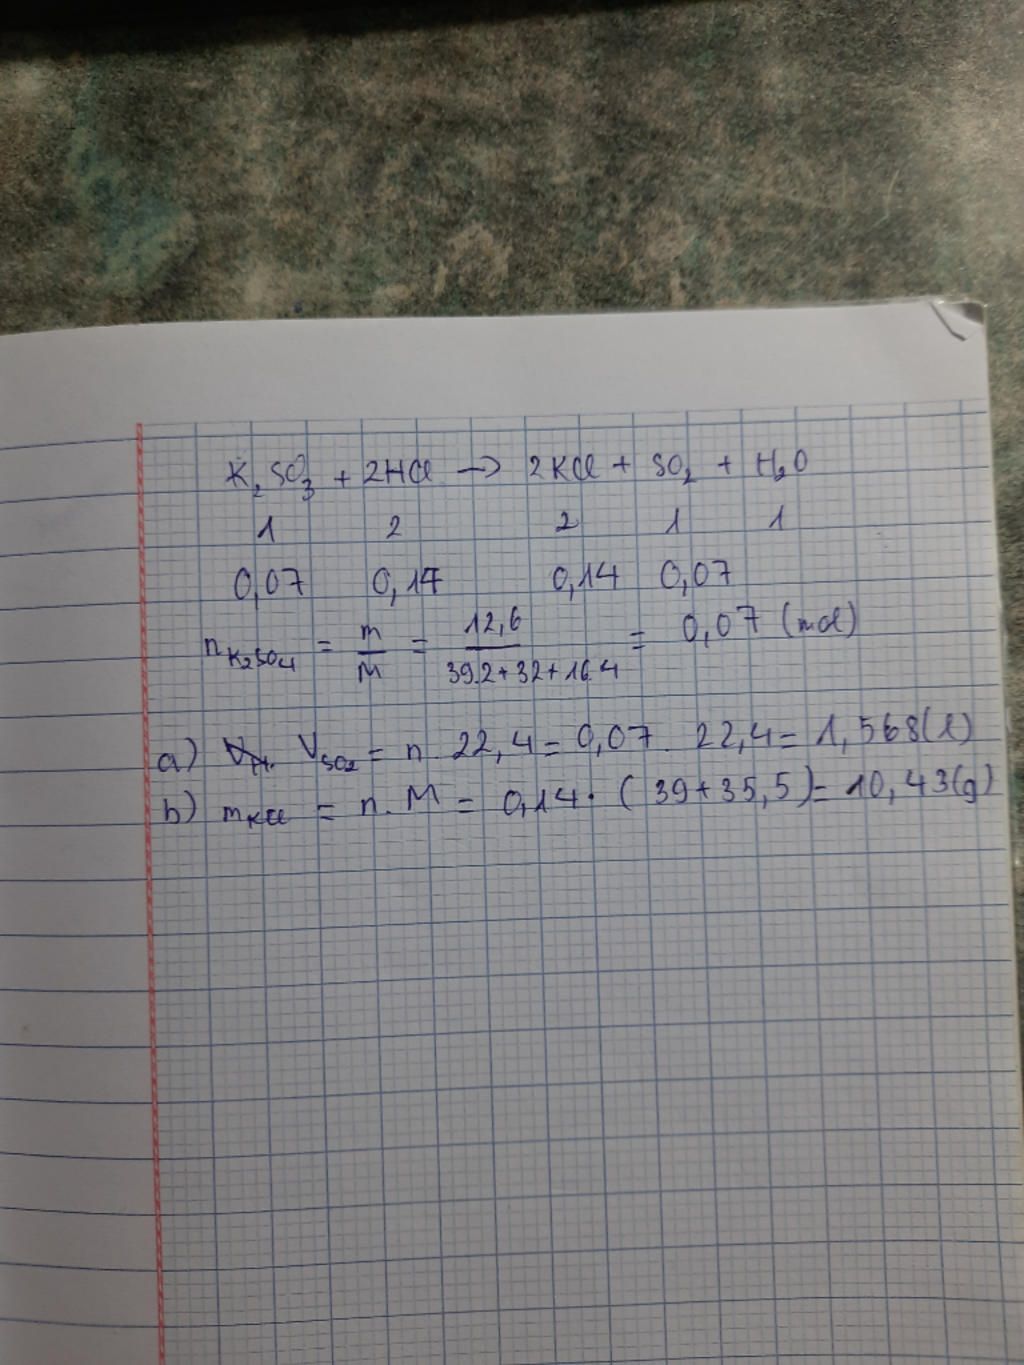 K₂SO₃ + 2HCl → 2KCl + SO₂ + H₂O
1 2 2 1 1
0,07 0,14 0,14 0,07
n K₂SO₄ = m/M = 12,6/(39.2+32+16.4) = 0,07 (mol)
a) V SO₂ = n. 22,4 = 0,07. 22,4 = 1,568(l)
b) m KCl = n. M = 0,14. (39+35,5) = 10,43(g)